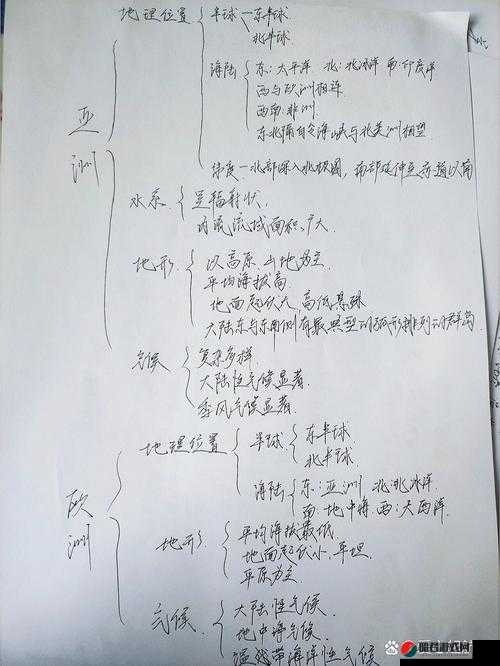 地理位置 半球 东半球
北半球
海陆 东:太平洋 北:北冰洋 南:印度洋
西与欧洲相连
西南:非洲
东北隔白令海峡与北美洲相望
纬度 北部深入北极圈,南部延伸至赤道以南
亚洲
水系 呈辐射状
内流流域面积广大
地形 以高原 山地为主
平均海拔高
地面起伏大,高低悬殊
大陆东与东南侧有最典型的弧形排列的群岛
气候 复杂多样
大陆性气候显著
季风气候显著
地理位置 半球 东半球
北半球
海陆 东:亚洲 北:北冰洋
南:地中海 西:大西洋
欧洲
地形 平均海拔最低
地面起伏小,平坦
平原为主
气候 大陆性气候
地中海气候
温带海洋性气候